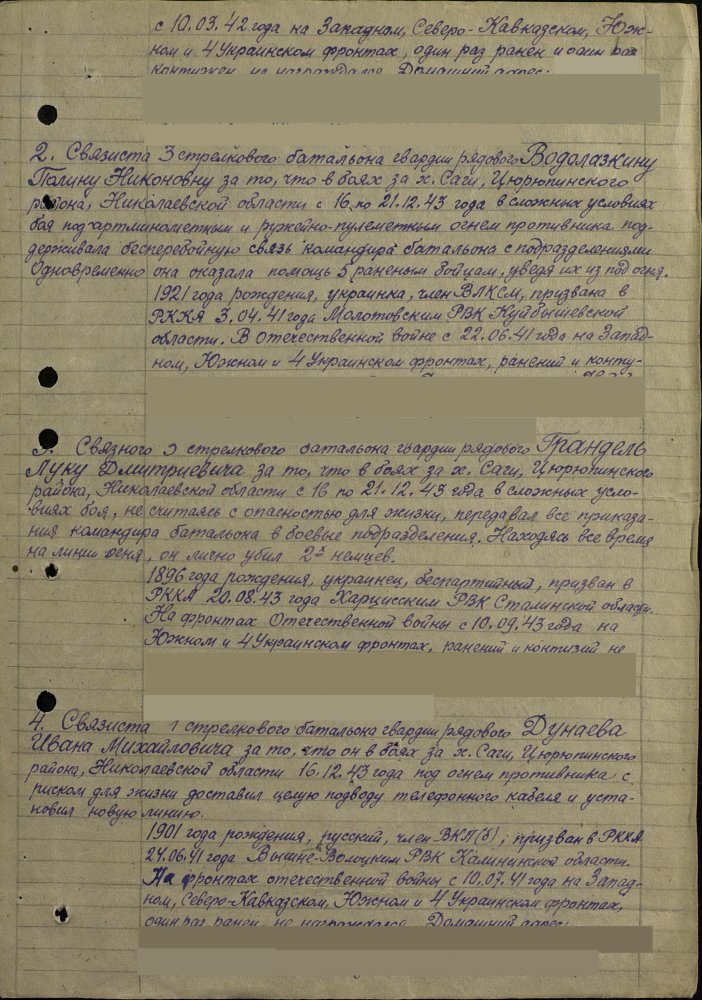 с 10.03.42 года на Западном, Северо-Кавказском, Юж-
ном и 4 Украинском фронтах, один раз ранен и один раз
контужен, не награждался. Домашний адрес:
2. Связиста 3 стрелкового батальона гвардии рядового Водолазкину
Полину Никоновну за то, что в боях за х. Саги, Цюрюпинского
района, Николаевской области с 16 по 21.12.43 года в сложных условиях
боя под артминометным и ружейно-пулеметным огнем противника под-
держивала бесперебойную связь командира батальона с подразделениями.
Одновременно она оказала помощь 5 раненым бойцам, уведя их из под огня.
1921 года рождения, украинка, член ВЛКСМ, призвана в
РККА 3.04.41 года Молотовским РВК Куйбышевской
области. В Отечественной войне с 22.06.41 года на Запад-
ном, Южном и 4 Украинском фронтах, ранений и конту-
3. Связного 3 стрелкового батальона гвардии рядового Грандель
Луку Дмитриевича за то, что в боях за х. Саги, Цюрюпинского
района, Николаевской области с 16 по 21.12.43 года в сложных усло-
виях боя, не считаясь с опасностью для жизни, передавал все приказа-
ния командира батальона в боевые подразделения. Находясь все время
на линии огня, он лично убил 2х немцев.
1896 года рождения, украинец, беспартийный, призван в
РККА 20.08.43 года Харцисским РВК Сталинской области.
На фронтах Отечественной войны с 10.09.43 года на
Южном и 4 Украинском фронтах, ранений и контузий не
4. Связиста 1 стрелкового батальона гвардии рядового Дунаева
Ивана Михайловича за то, что он в боях за х. Саги, Цюрюпинского
района, Николаевской области 16.12.43 года под огнем противника с
риском для жизни доставил целую подводу телефонного кабеля и уста-
новил новую линию.
1901 года рождения, русский, член ВКП(б), призван в РККА
24.06.41 года Вышне-Волоцким РВК Калининской области.
На фронтах отечественной войны с 10.07.41 года на Запад-
ном, Северо-Кавказском, Южном и 4 Украинском фронтах,
один раз ранен, не награждался. Домашний адрес: